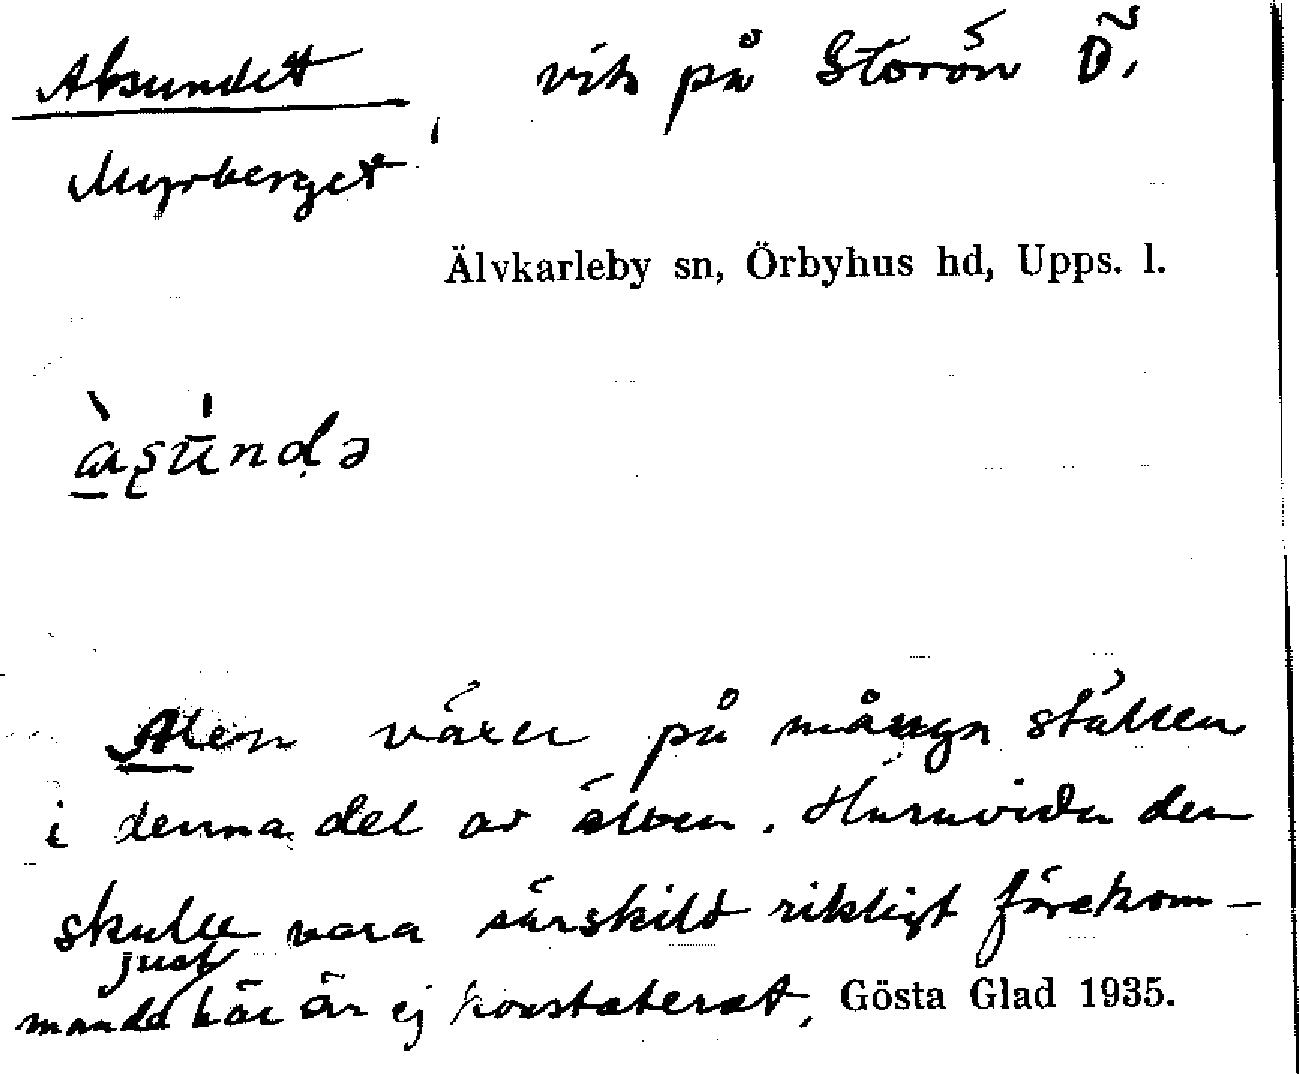 Alsundet, vik på Storön Ö.
Myrberget
Älvkarleby sn, Örbyhus hd, Upps. l.
à̱ʂū́nḍə
Alen växer på många ställen
i denna del av älven. Huruvida den
skulle vara särskilt rikligt förekom-
mande just här är ej konstaterat. Gösta Glad 1935.